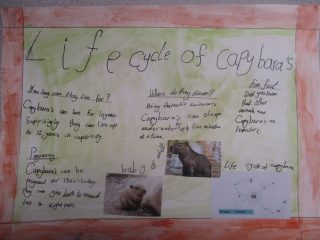 Life cycle of Capybara's
How long can they live for?
Capybara's can live for 10 years.
Suprisigly they can live up
to 12 years in captivity.
Where do they sleep?
Being fantastic swimmers
Capybara's can sleep
underwater up to five minutes
at a time.
Fun Fact
Did you know
that other
animals use
Capybara's as
Pregnancy
Capybara's can be
pregnant for 130-150 day.
they can give birth to around
two to eight pups.
baby to adult
Life cycle of capybara